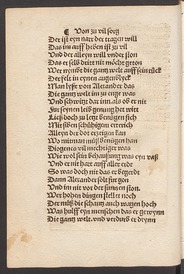 ¶ Von zu vil sorg
Der ist eyn narr der tragen will
Das im auff heben ist zu vil
Vnd der alleyn will vnder ston
Das er selb dritt nit möcht geton
Wer nymbt die gantz welt auff sein rück
Der felt jn eynem augenblick
Man lyßt von Alexander das
Die gantz welt im zu enge was
Vnd schwitzt dar inn als ob er nit
Für seynen leib genug het witt
Ließ doch zu letzt benügen sich
Mit siben schühigem erterich
Alleyn der dot erzeigen kan
Wo mitt man müß benügen han
Diogenes vil mechtiger was
Wie wol sein behausung was eyn vaß
Vnd er nit hatt auff aller erde
So was doch nit das er begerdt
Dann Alexander solt für gon
Vnd im nit vor der sunnen ston
Wer hohen dingen stellet noch
Der müß die schantz auch wagen hoch
Was hulff eyn menschen das er gewynn
Die gantz welt vnd verdürb er drynn